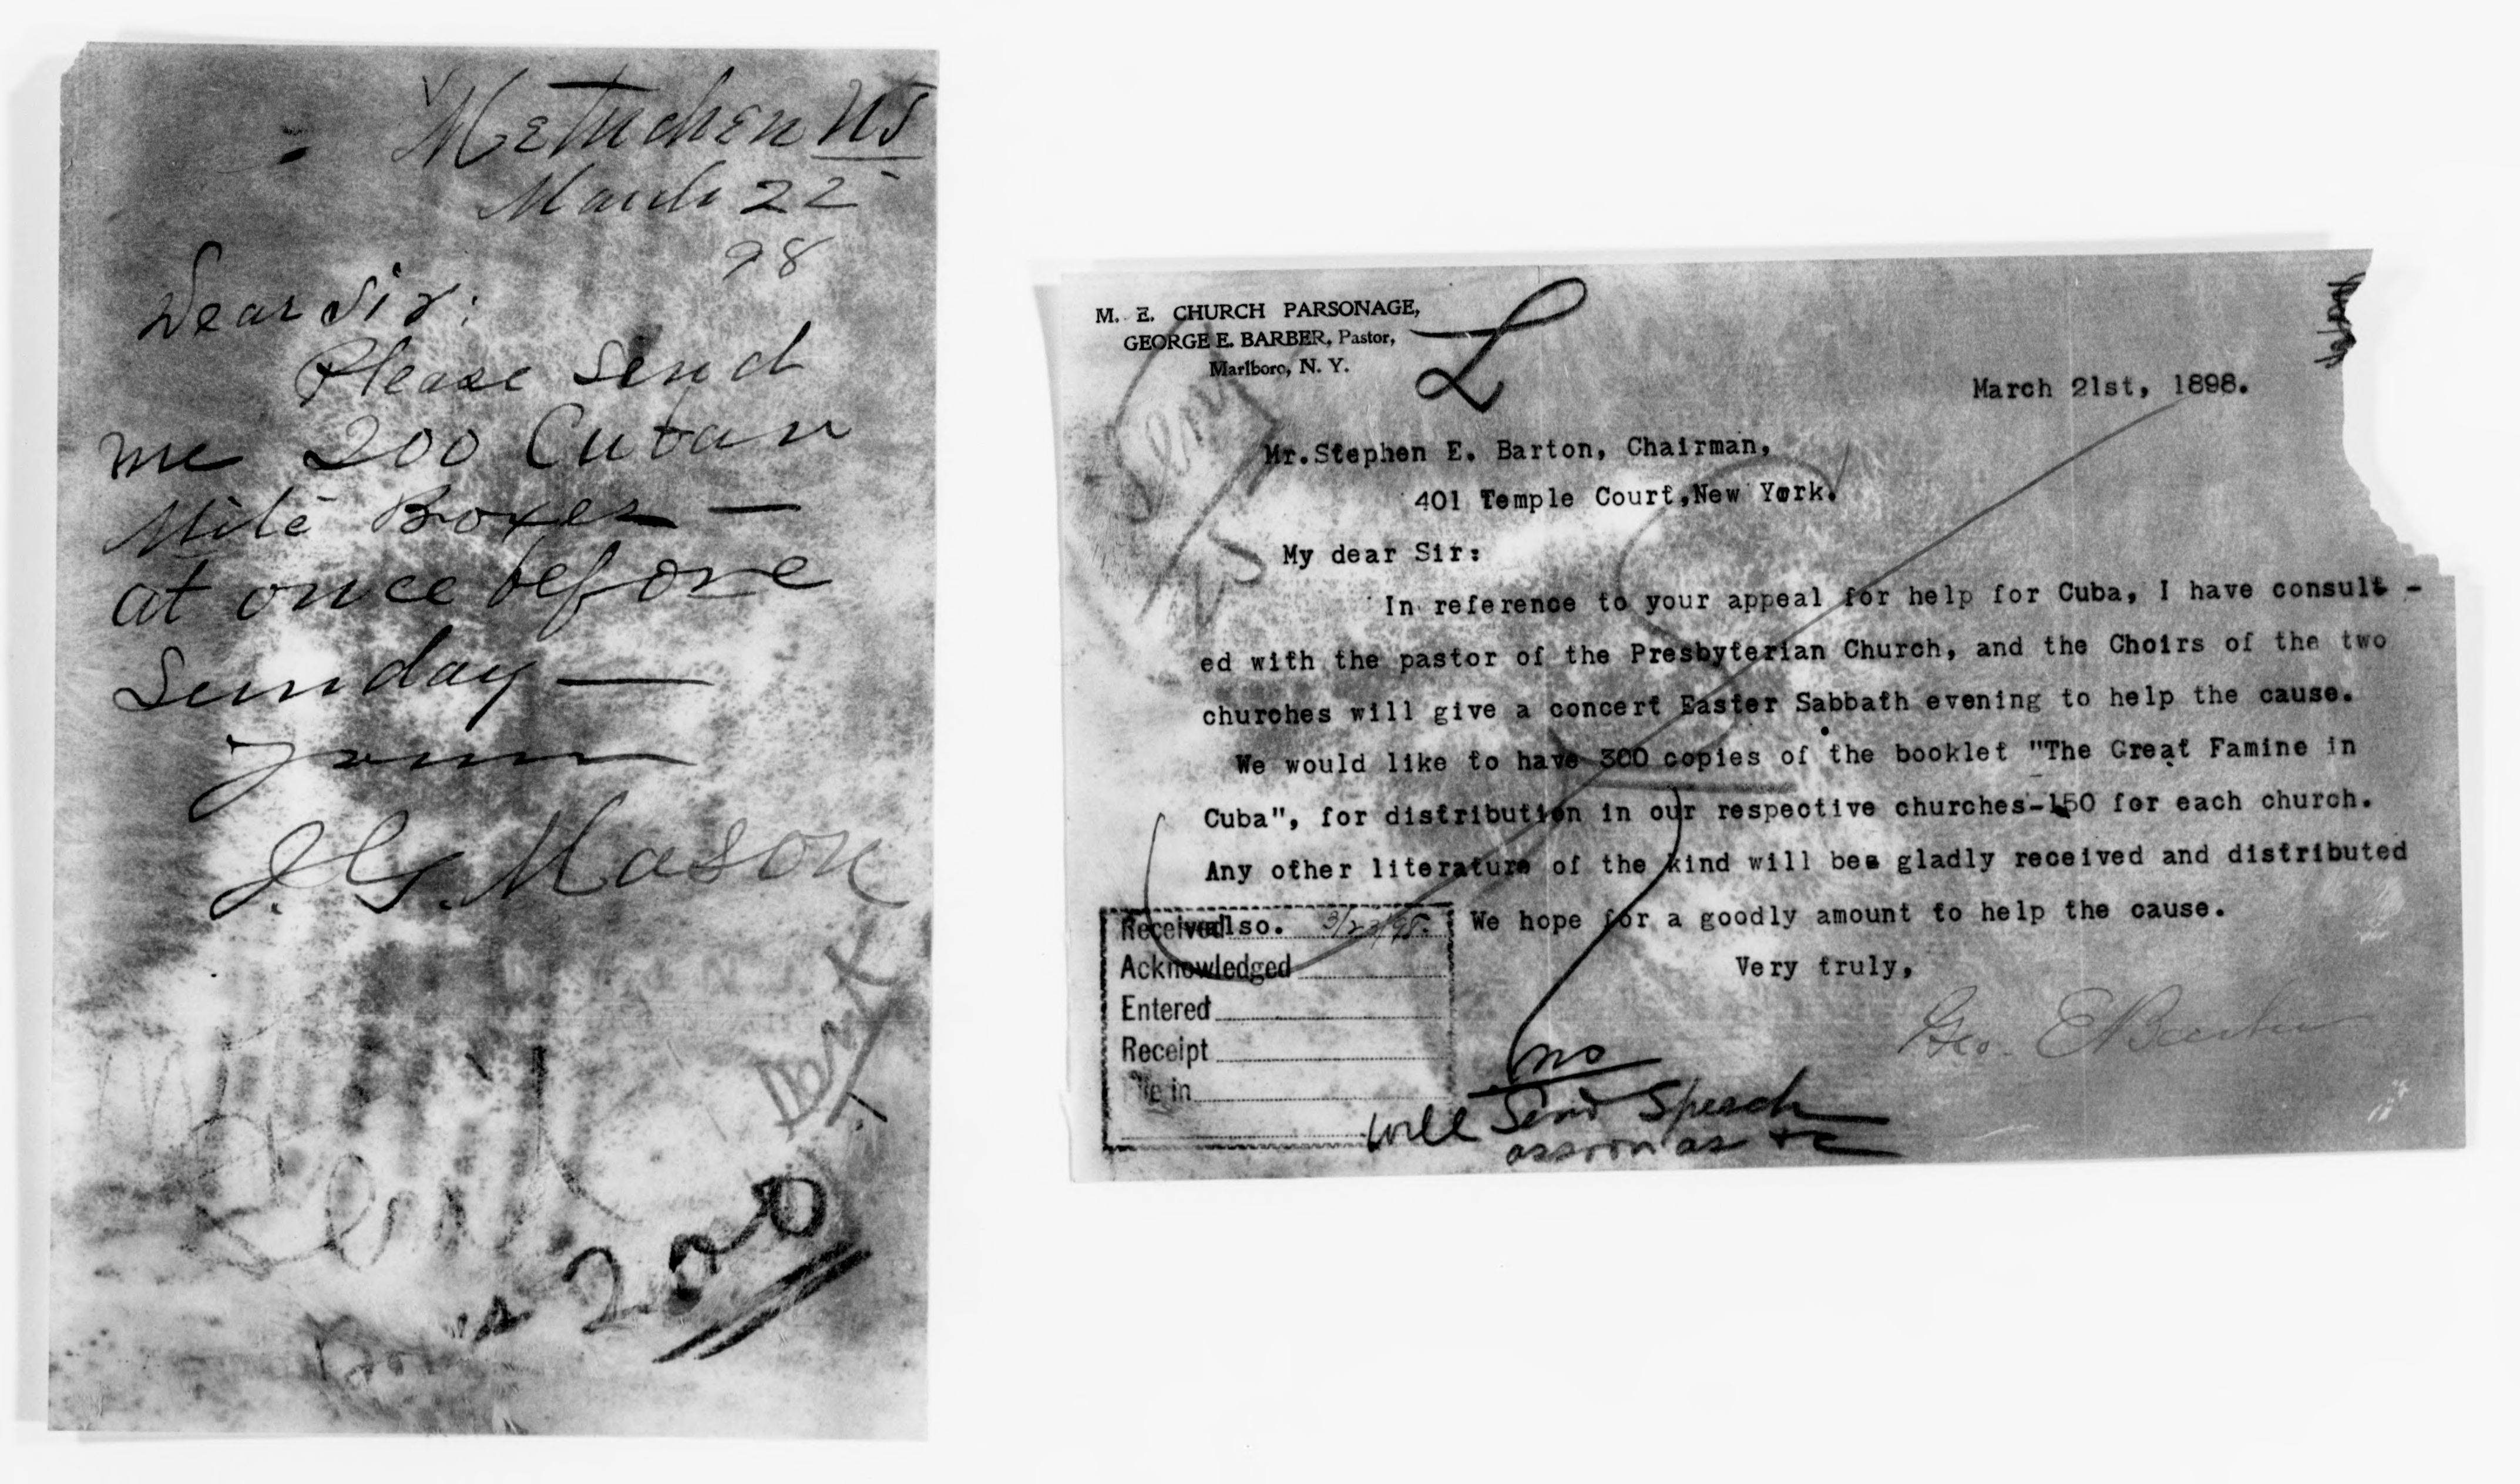 Metuchen NJ
March 22
98
Dear Sir:
Please send
me 200 Cuban
Mite Boxes —
at once before
Sunday —
Yours
J. G. Mason
Sent
200
M. E. CHURCH PARSONAGE,
GEORGE E. BARBER, Pastor,
Marlboro, N. Y.
L
Sent
March 21st, 1898.
Mr.Stephen E. Barton, Chairman,
401 Temple Court,New York.
My dear Sir:
In reference to your appeal for help for Cuba, I have consult -
ed with the pastor of the Presbyterian Church, and the Choirs of the two
churches will give a concert Easter Sabbath evening to help the cause.
We would like to have 300 copies of the booklet "The Great Famine in
Cuba", for distribution in our respective churches-150 for each church.
Any other literature of the kind will bee gladly received and distributed
also. We hope for a goodly amount to help the cause.
Very truly,
Geo. E Barber
Received 3/23/98.
Acknowledged
Entered
Receipt
File in
no
will Send Speech
as soon as + c